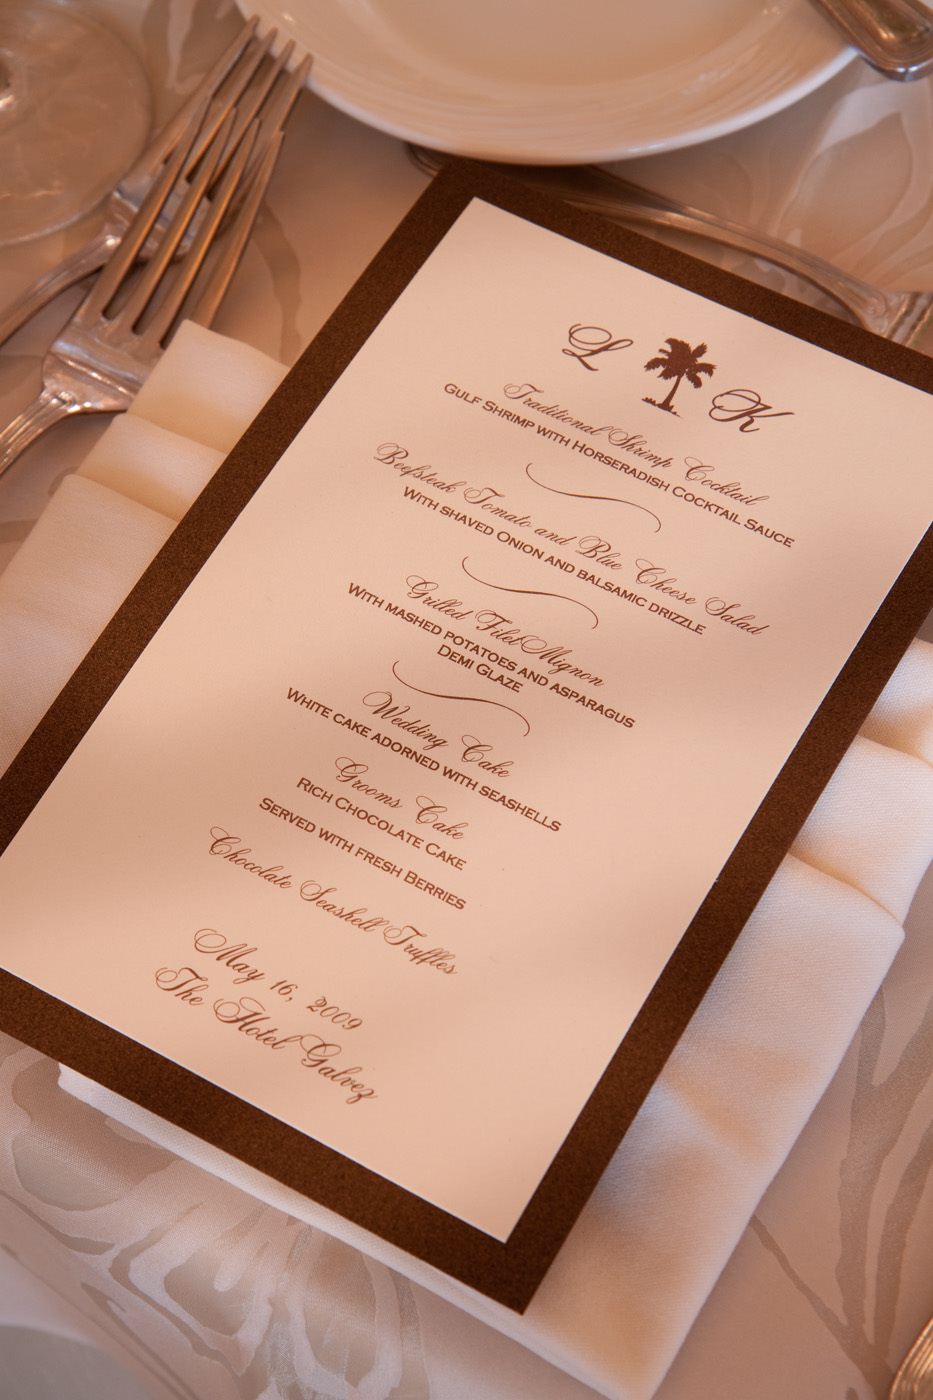 L K
Traditional Shrimp Cocktail
Gulf Shrimp with Horseradish Cocktail Sauce
Beefsteak Tomato and Blue Cheese Salad
With shaved Onion and balsamic drizzle
Grilled Filet Mignon
With mashed potatoes and asparagus
Demi Glaze
Wedding Cake
White cake adorned with seashells
Grooms Cake
Rich Chocolate Cake
Served with fresh Berries
Chocolate Seashell Truffles
May 16, 2009
The Hotel Galvez